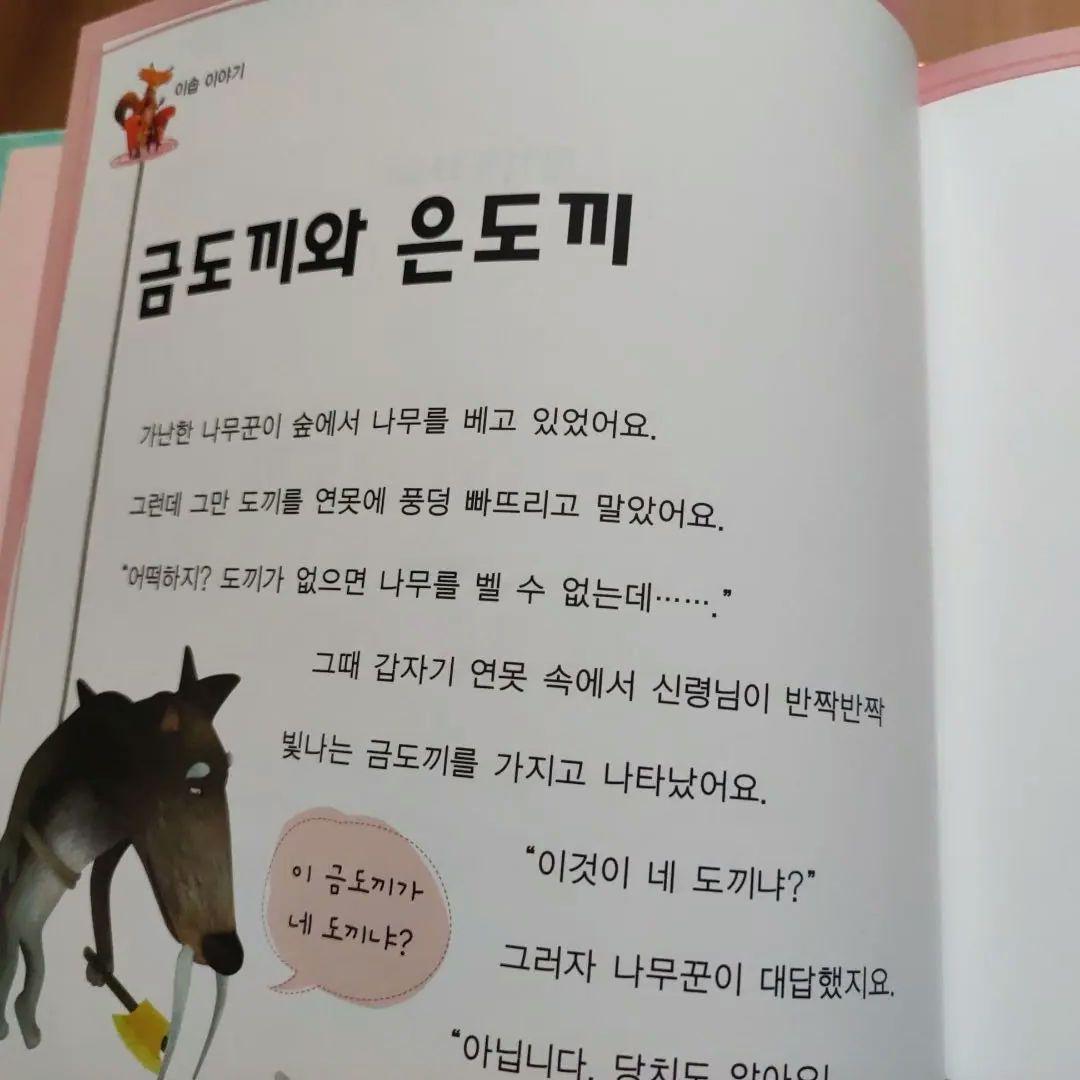 이솝 이야기
금도끼와 은도끼
가난한 나무꾼이 숲에서 나무를 베고 있었어요.
그런데 그만 도끼를 연못에 풍덩 빠뜨리고 말았어요.
“어떡하지? 도끼가 없으면 나무를 벨 수 없는데…….”
그때 갑자기 연못 속에서 신령님이 반짝반짝
빛나는 금도끼를 가지고 나타났어요.
“이것이 네 도끼냐?”
이 금도끼가
네 도끼냐?
그러자 나무꾼이 대답했지요.
“아닙니다. 당치도 않아요!